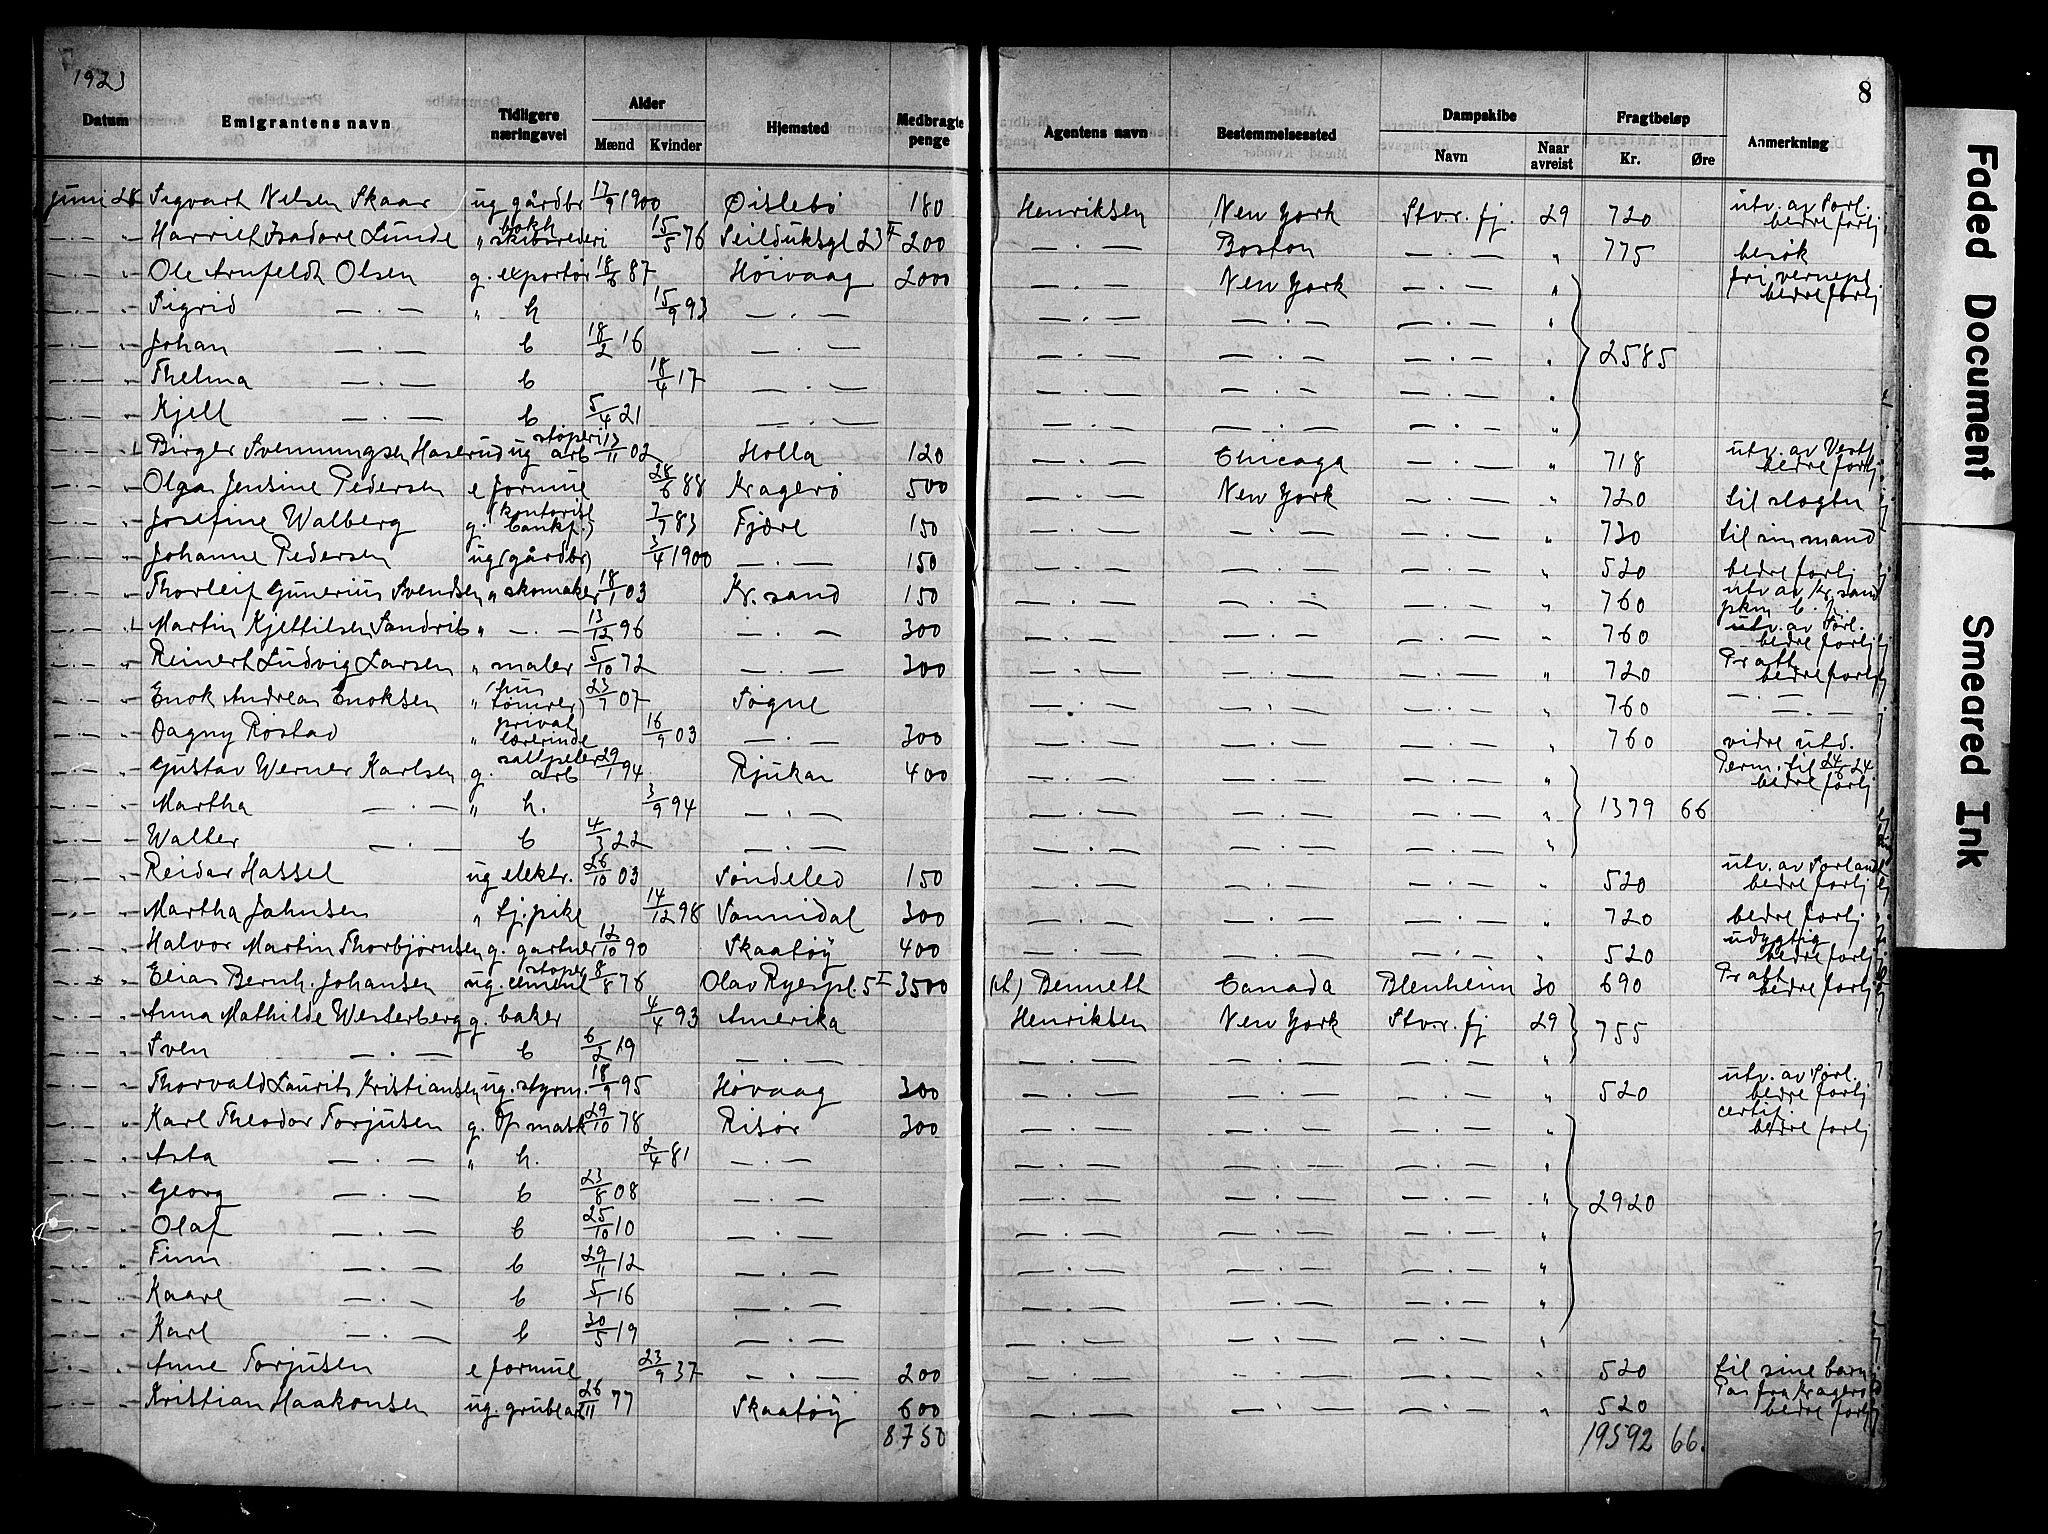 1923
8
Datum | Emigrantens navn | Tidligere næringsvei | Alder Mænd | Kvinder | Hjemsted | Medbragte penge | Agentens navn | Bestemmelsessted | Dampskibe Navn | Naar avreist | Fragtbeløp Kr. | Øre | Anmerkning
juni 28 Sigvart Nilsen Skaar ug gårdbr 17/9 1900 Øislebø 180 Henriksen New York Stvr. fj. 29 720 utv. av Sørl. bedre forhj
— . — " Harriet Isadore Lunde " bokh skibsrederi 15/5 76 Seilduksgt 23 II 200 — . — Boston — . — " 775 besøk
— . — " Ole Arnfeldt Olsen g. exportør 18/6 87 Høivaag 2000 — . — New York — . — " fri vernepl. bedre forhj
— . — " Sigrid — . — " h 15/9 93 — . — — . — — . — — . — "
— . — " Johan — . — b 18/2 16 — . — — . — — . — — . — " 2585
— . — " Thelma — . — b 18/4 17 — . — — . — — . — — . — "
— . — " Kjell — . — b 5/4 21 — . — — . — — . — — . — "
— . — " Birger Svennungsen Haserud ug støperi arb 13/11 02 Holla 120 — . — Chicago — . — " 718 utv. av Vestf bedre forhj
— . — " Olga Jensine Pedersen e formue 28/6 88 Kragerø 500 — . — New York — . — " 720 til slegtn
— . — " Josefine Walberg g. (kontorist bankf.) 7/7 83 Fjære 150 — . — — . — — . — " 730 til sin mand
— . — " Johanne Pedersen ug (gårdbr) 3/4 1900 — . — 150 — . — — . — — . — " 520 bedre forhj
— . — " Thorleif Gunerius Svendsen " skomaker 18/1 03 Kr.sand 150 — . — — . — — . — " 760 utv av Kr.sand pkm b. f.
— . — " Martin Kjettilsen Sandvik " — . — 13/12 96 — . — 300 — . — — . — — . — " 760 utv. av Sørl. bedre forhj
— . — " Reinert Ludvig Larsen " maler 5/10 72 — . — 300 — . — — . — — . — " 720 Pr att bedre forhj
— . — " Enok Andreas Enoksen " (hus tømrer) 23/7 07 Søgne — . — — . — — . — " 760 — . — — . —
— . — " Dagny Røstad " privat lærerinde 16/9 03 — . — 300 — . — — . — — . — " 760 vidre utd.
— . — " Gustav Werner Karlsen g. saltpeter arb 29/1 94 Rjukan 400 — . — — . — — . — " Perm. til 24/6 24 bedre forhj
— . — " Martha — . — " h. 3/9 94 — . — — . — — . — — . — " 1379 66
— . — " Walter — . — b 4/3 22 — . — — . — — . — — . — "
— . — " Reidar Hassel ug elektr. 26/10 03 Søndeled 150 — . — — . — — . — " 520 utv. av Sørlandt bedre forhj
— . — " Martha Jahnsen " tj. pike 14/12 98 Sannidal 300 — . — — . — — . — " 720 bedre forhj
— . — " Halvor Martin Thorbjørnsen g. gartner 12/10 90 Skaatøy 400 — . — — . — — . — " 520 udygtig bedre forhj
— . — " Elias Bernh. Johansen ug. støper cement 8/8 76 Olav Ryespl. 5 I 3500 Bennett Canada Blenheim 30 690 Pr att bedre forhj
— . — " Anna Mathilde Westerberg g. baker 4/4 93 Amerika Henriksen New York Stvr. fj 29 755
— . — " Sven — . — b 6/2 19 — . — — . — — . — — . — "
— . — " Thorvald Laurits Kristiansen ug. styrm. 18/9 95 Høvaag 300 — . — — . — — . — " 520 utv. av Sørl. bedre forhj
— . — " Karl Theodor Torjusen g. Op mask 29/10 78 Risør 300 — . — — . — — . — " certif bedre forhj
— . — " Asta — . — " h. 2/4 81 — . — — . — — . — — . — "
— . — " Georg — . — b 23/8 08 — . — — . — — . — — . — " 2920
— . — " Olaf — . — b 25/10 10 — . — — . — — . — — . — "
— . — " Finn — . — b 29/11 12 — . — — . — — . — — . — "
— . — " Kaare — . — b 5/1 16 — . — — . — — . — — . — "
— . — " Karl — . — b 30/5 19 — . — — . — — . — — . — "
— . — " Anne Torjusen e formue 23/9 37 — . — 200 — . — — . — — . — " 520 til sine barn
— . — " Kristian Haakonsen ug. grubearb 26/11 77 Skaatøy 600 — . — — . — — . — " 520 Pas fra Kragerø bedre forhj
8750 19592 66.
Faded Document
Smeared Ink